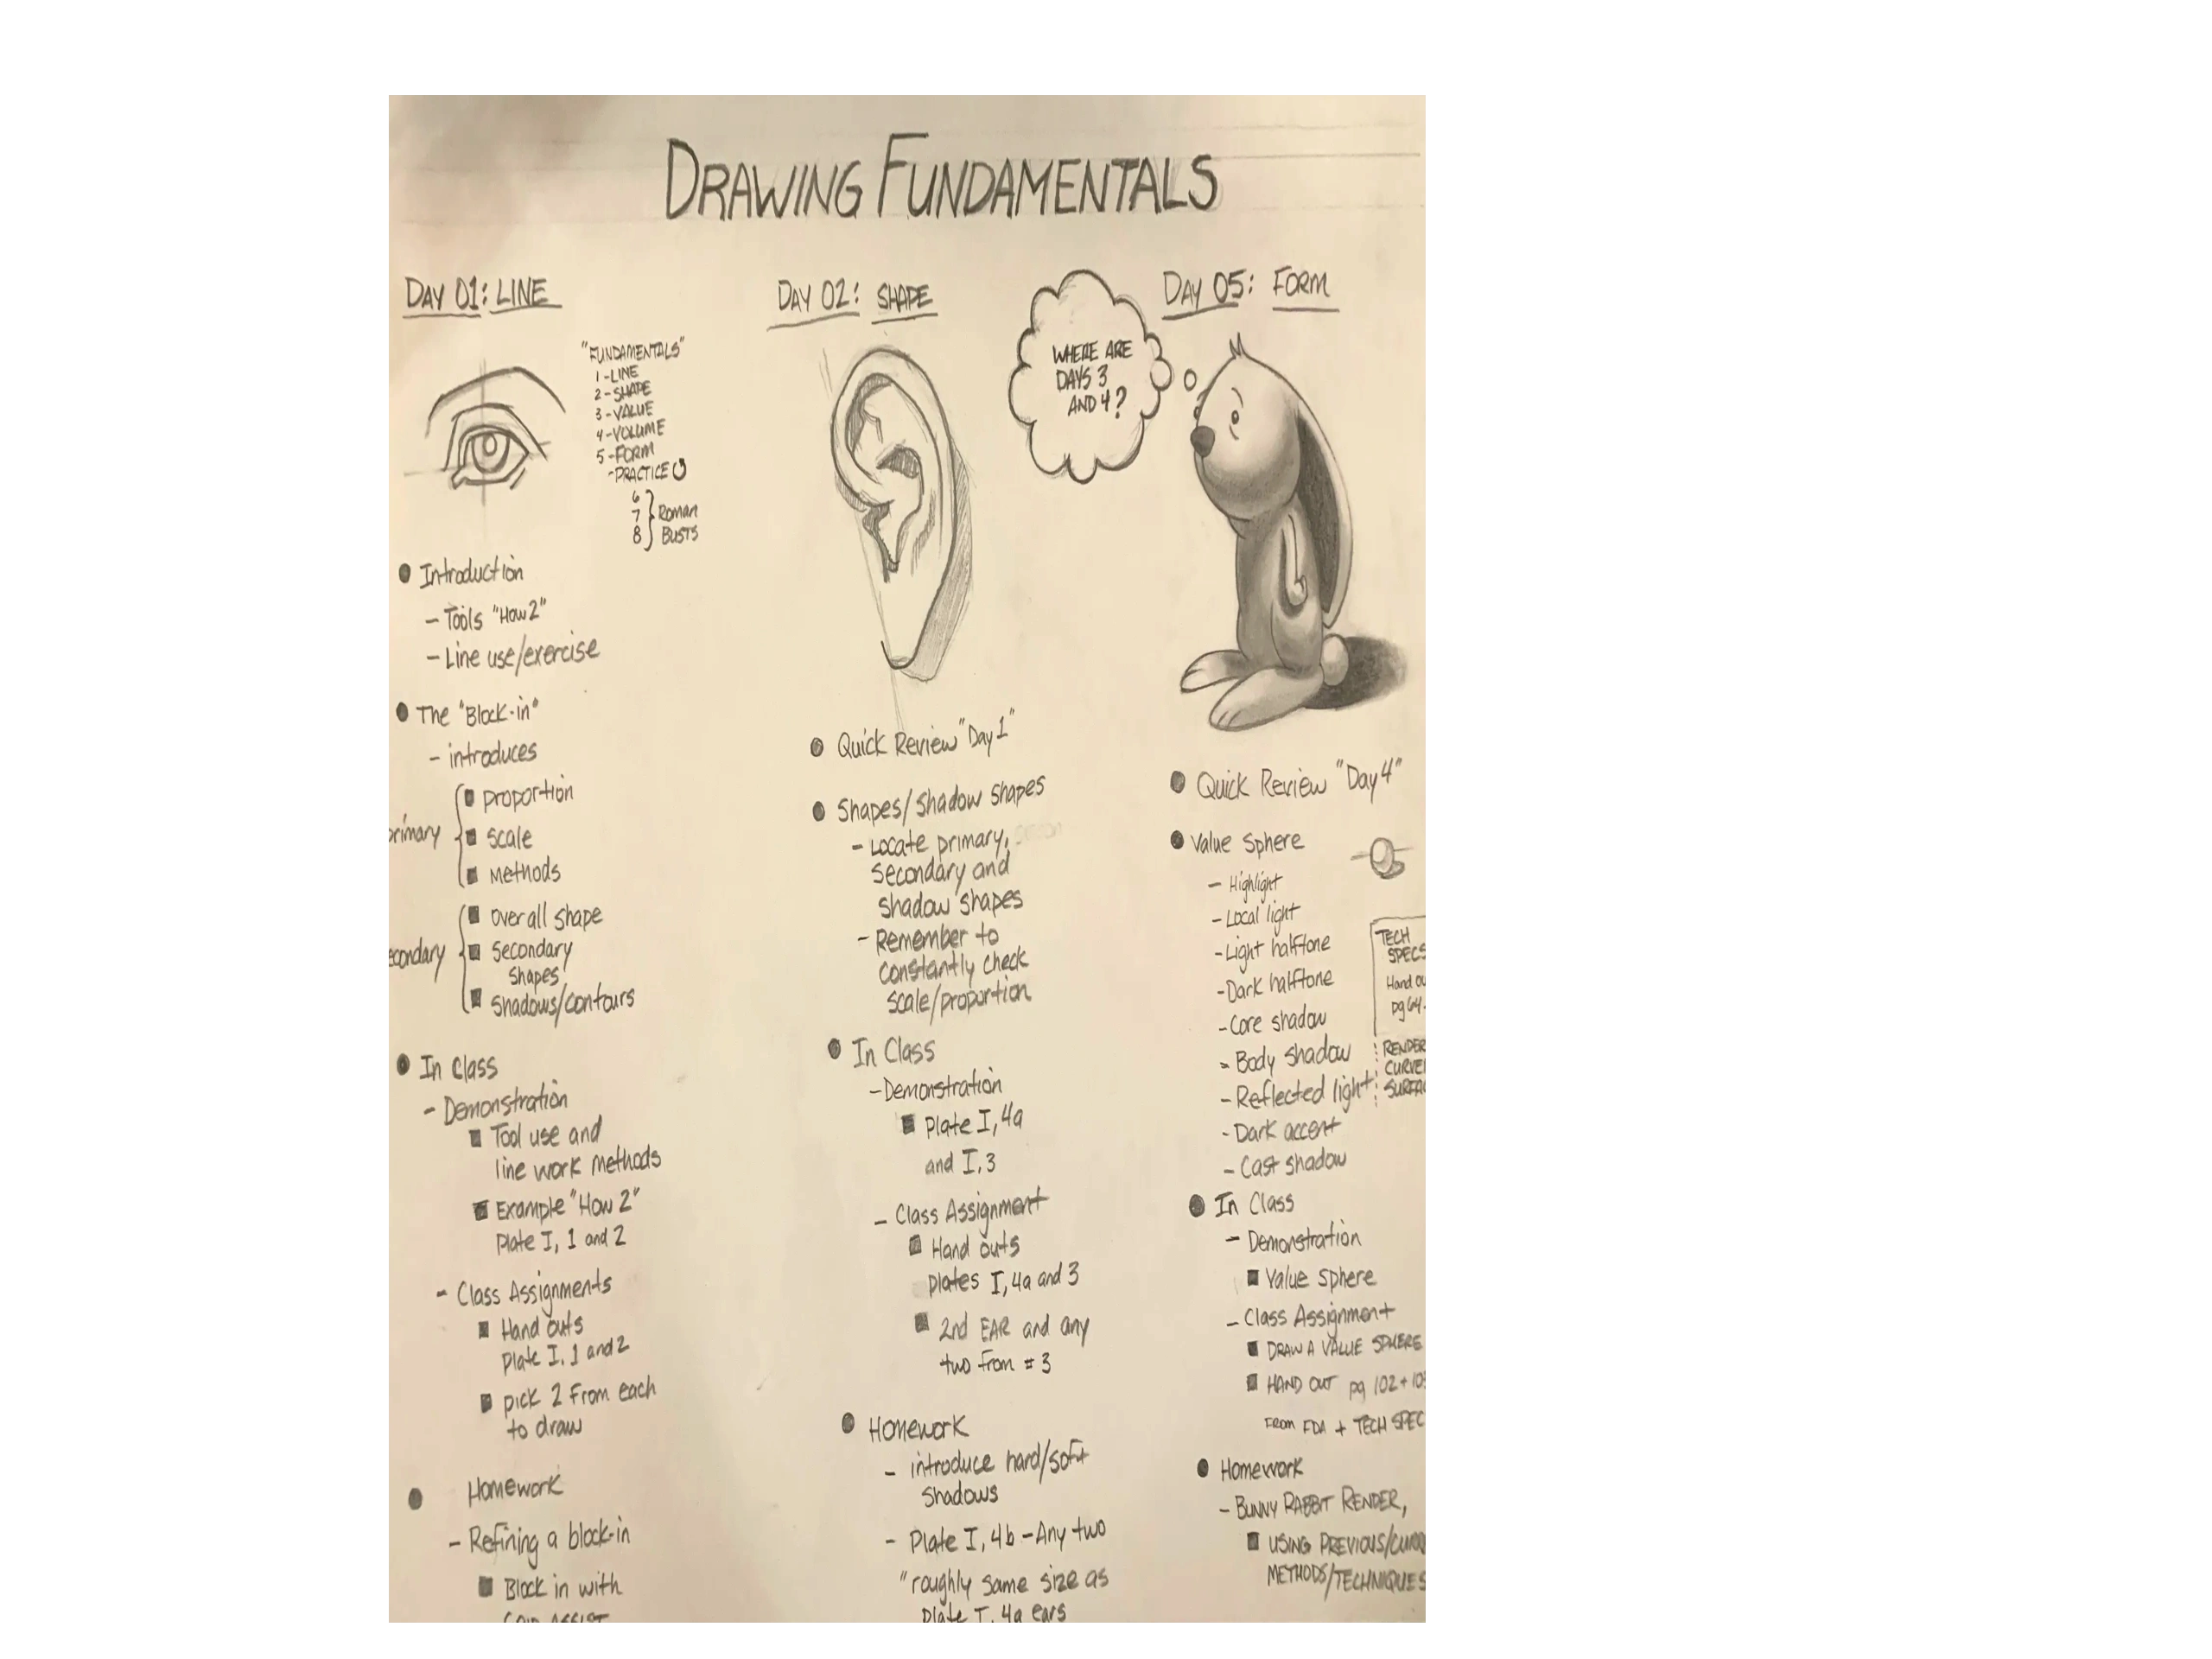 DRAWING FUNDAMENTALS
DAY 01: LINE
"FUNDAMENTALS"
1-LINE
2-SHAPE
3-VALUE
4-VOLUME
5-FORM
-PRACTICE
6
7
8
Roman
BUSTS
Introduction
- Tools "How 2"
- Line use/exercise
The "Block-in"
- introduces
primary
proportion
scale
methods
overall shape
econdary
Secondary
shapes
shadows/contours
In Class
- Demonstration
Tool use and
line work methods
Example "How 2"
plate I, 1 and 2
- Class Assignments
Hand outs
plate I, 1 and 2
pick 2 from each
to draw
Homework
- Refining a block-in
Block in with
DAY 02: SHAPE
Quick Review "Day 1"
Shapes/shadow shapes
- Locate primary,
secondary and
shadow shapes
- Remember to
constantly check
scale/proportion
In Class
- Demonstration
plate I, 4a
and I, 3
- Class Assignment
Hand outs
plates I, 4a and 3
2nd EAR and any
two from #3
Homework
- introduce hard/soft
shadows
- Plate I, 4b - Any two
"roughly same size as
plate I, 4a ears
WHERE ARE
DAYS 3
AND 4?
DAY 05: FORM
Quick Review "Day 4"
Value Sphere
- Highlight
- Local light
- Light halftone
- Dark halftone
- Core shadow
- Body shadow
- Reflected light
- Dark accent
- Cast shadow
TECH
SPECS
Hand ou
pg 64-
RENDER
CURVE
SURFA
In Class
- Demonstration
Value sphere
- Class Assignment
DRAW A VALUE SPHERE
HAND OUT pg 102 + 10
From FDA + TECH SPEC
Homework
- BUNNY RABBIT RENDER,
USING PREVIOUS/CURR
METHODS/TECHNIQUES